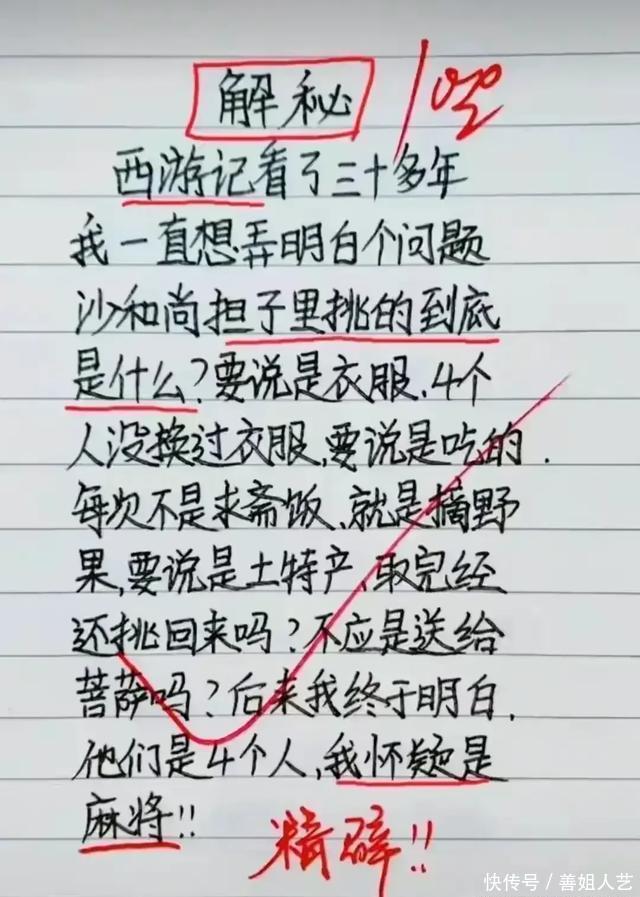 解秘
100
西游记看了三十多年
我一直想弄明白个问题
沙和尚担子里挑的到底
是什么?要说是衣服.4个
人没换过衣服,要说是吃的.
每次不是求斋饭、就是摘野
果,要说是土特产,取完经
还挑回来吗?不应是送给
菩萨吗?后来我终于明白.
他们是4个人,我怀疑是
麻将!!
精辟!!
快传号/善姐人艺